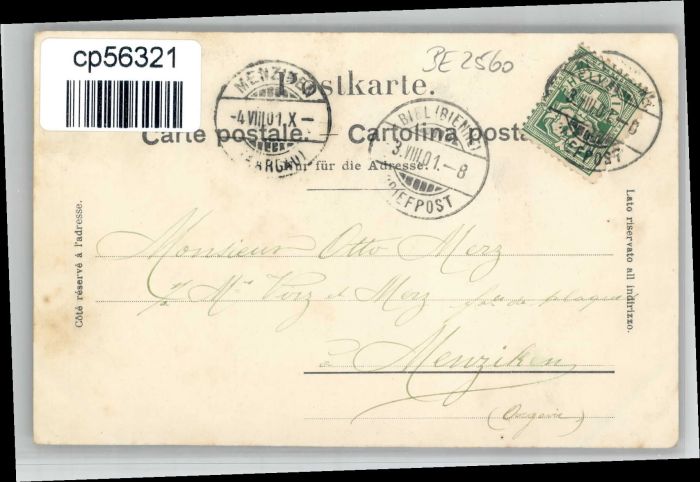 cp56321
BE 2560
Postkarte.
MENZIKEN
-4.VIII.01.X-
(AARGAU)
BIEL (BIENNE)
3.VIII.01.-8
BRIEFPOST
Carte postale. — Cartolina posta
Nur für die Adresse.
Côté réservé à l'adresse.
Lato riservato all indirizzo.
Monsieur Otto Merz
Merz de
à Menziken